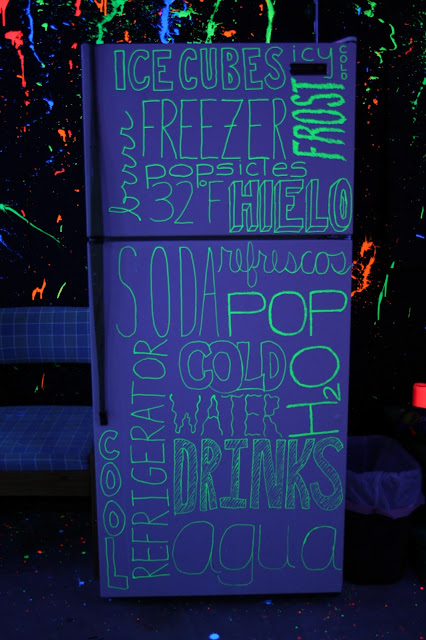 ICE CUBES
icy
cold
FREEZER
FROST
brrrr
popsicles
32°F
HIELO
SODA
refrescos
POP
COLD
H2O
WATER
REFRIGERATOR
COOL
DRINKS
agua